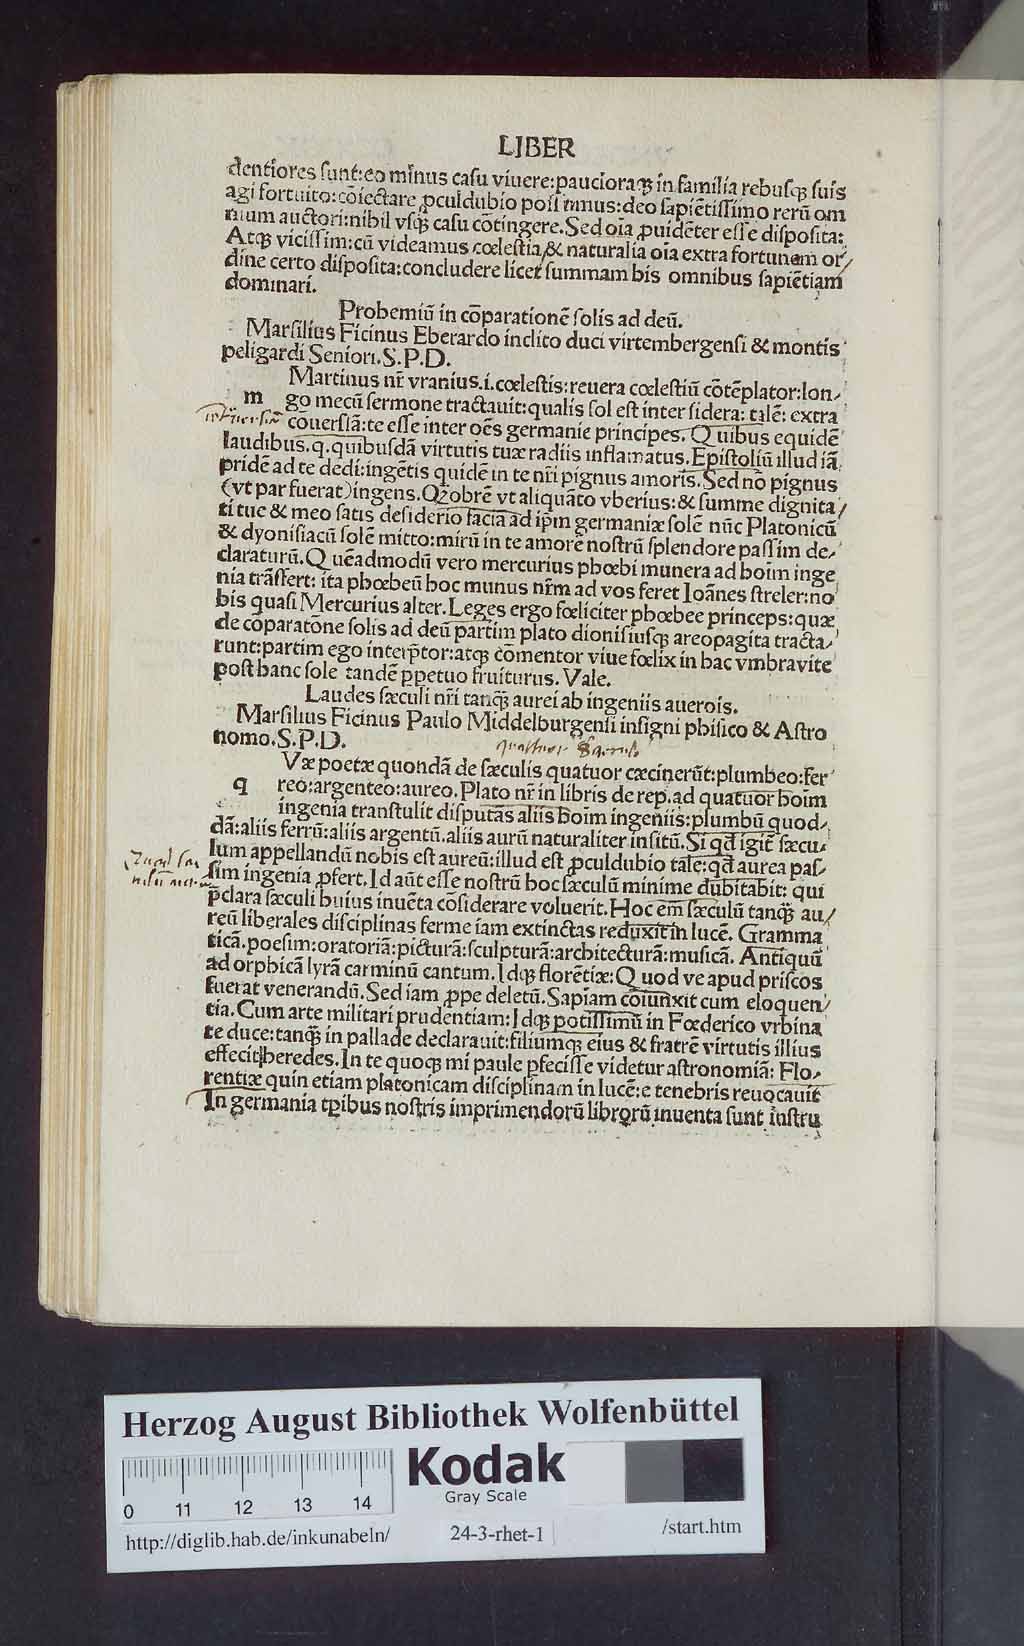 LIBER
dentiores sunt:eo minus casu viuere:paucioraqȝ in familia rebusqȝ suis
agi fortuito:cōiectare ꝓculdubio possumus:deo sapiētissimo rerū om
nium auctori:nihil vsqȝ casu cōtingere.Sed oīa ꝓuidēter esse disposita:
Atqȝ vicissim:cū videamus cœlestia/& naturalia oīa extra fortunam or/
dine certo disposita:concludere licet summam his omnibus sapiētiam
dominari.
Prohemiū in cōparationē solis ad deū.
Marsilius Ficinus Eberardo inclito duci virtembergensi & montis
peligardi Seniori.S.P.D.
Martinus nr̄ vranius.i.cœlestis:reuera cœlestiū cōtēplator:lon/
m go mecū sermone tractauit:qualis sol est inter sidera: talē: extra
cōuersiā:te esse inter oēs germanie principes. Quibus equidē
laudibus.q.quibusdā virtutis tuæ radiis inflamatus.Epistoliū illud iā
pridē ad te dedi:ingētis quidē in te nr̄i pignus amoris.Sed nō pignus
(vt par fuerat)ingens.Qȝobrē vt aliquāto vberius:& summe dignita/
ti tue & meo satis desiderio faciā ad ip̄m germaniæ solē nūc Platonicū
& dyonisiacū solē mitto:mirū in te amorē nostrū splendore passim de/
claraturū.Quēadmodū vero mercurius phœbi munera ad hoīm inge
nia trāsfert: ita phœbeū hoc munus nr̄m ad vos feret Ioānes streler:no
bis quasi Mercurius alter.Leges ergo fœliciter phœbee princeps:quæ
de cōparatōne solis ad deū partim plato dionisiusqȝ areopagita tracta/
runt:partim ego interp̄tor:atqȝ cōmentor viue fœlix in hac vmbra vite
post hanc sole tandē ꝑpetuo fruiturus. Vale.
Laudes sæculi nr̄i tanqȝ̄ aurei ab ingeniis auerois.
Marsilius Ficinus Paulo Middelburgensi insigni phisico & Astro
nomo.S.P.D.
Væ poetæ quondā de sæculis quatuor cæcinerūt:plumbeo:fer
q reo:argenteo:aureo.Plato nr̄ in libris de rep.ad quatuor hoīm
ingenia transtulit disputās aliis hoīm ingeniis:plumbū quod/
dā:aliis ferrū:aliis argentū.aliis aurū naturaliter insitū.Si qd̄ igit̄ sæcu/
lum appellandū nobis est aureū:illud est ꝓculdubio tale:qd̄ aurea pas/
sim ingenia ꝓfert.Id aūt esse nostrū hoc sæculū minime dubitabit: qui
p̄clara sæculi huius inuēta cōsiderare voluerit.Hoc em̄ sæculū tanqȝ̄ au/
reū liberales disciplinas ferme iam extinctas reduxit in lucē. Gramma
ticā.poesim:oratoriā:picturā:sculpturā:architecturā:musicā. Antiquū
ad orphicā lyrā carminū cantum.Idqȝ florētiæ:Quod ve apud priscos
fuerat venerandū.Sed iam ꝓpe deletū.Sapiam coiunxit cum eloquen/
tia.Cum arte militari prudentiam:Idqȝ potissimū in Fœderico vrbina
te duce:tanqȝ̄ in pallade declarauit:filiumqȝ eius & fratrē virtutis illius
effecit heredes.In te quoqȝ mi paule ꝑfecisse videtur astronomiā: Flo/
rentiæ quin etiam platonicam disciplinam in lucē:e tenebris reuocauit
In germania tꝑibus nostris imprimendorū librorū inuenta sunt iustru
Herzog August Bibliothek Wolfenbüttel
Kodak
Gray Scale
0 11 12 13 14
http://diglib.hab.de/inkunabeln/ 24-3-rhet-1 /start.htm